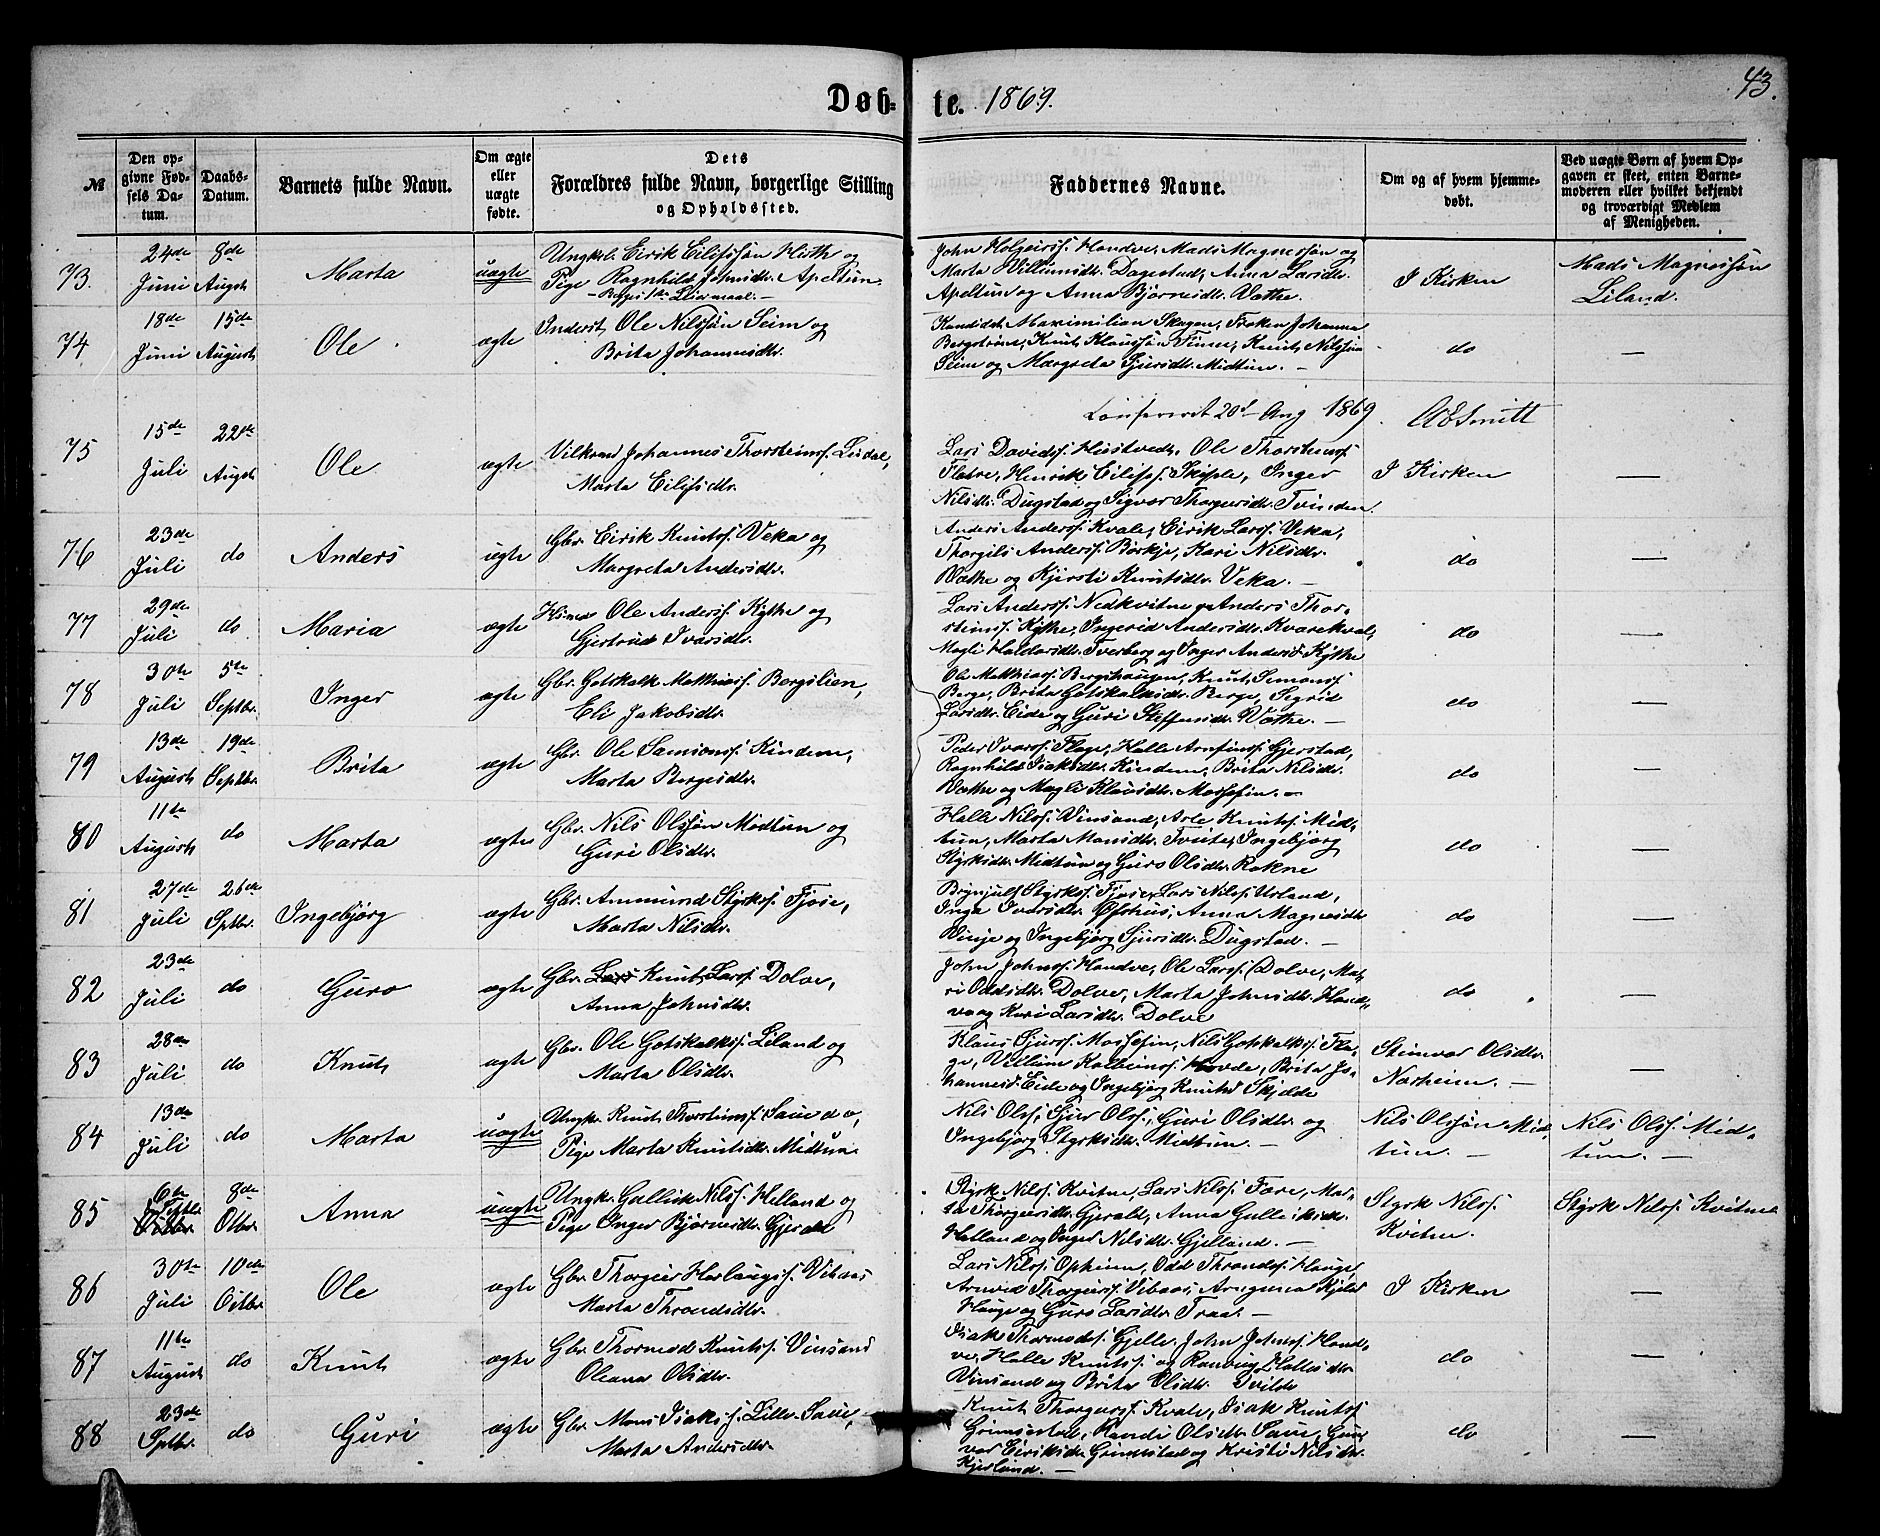 Døb-te. 1869.
43.
№
Den op-
givne Fød-
sels Da-
tum.
Daabs-
Datum.
Barnets fulde Navn.
Om ægte
eller
uægte
fødte.
Dets
Forældres fulde Navn, borgerlige Stilling
og Opholdssted.
Faddernes Navne.
Om og af hvem hjemme-
døbt.
Ved uægte Børn af hvem Op-
gaven er skeet, enten Barne-
moderen eller hvilket bekjendt
og troværdigt Medlem
af Menigheden.
73.
24de
Juni
8de
Augst
Marta
uægte
Ungkl. Eirik Eilifssøn Hirth og
Pige Ragnhild Johnsdtr. Apeltun
Leiermaal. —
John Holgeirss. Handve, Mads Magnessøn og
Marta Villumsdtr. Dagestad, Anna Larsdtr.
Apeltun og Anna Bjørnesdtr. Væthe.
I Kirken
Mads Magnessøn
Liland.
74
18de
Juni
15de
August
Ole
ægte
Inderst Ole Nilssøn Seim og
Brita Johannesdtr.
Kandidat Maximilian Skagen, Frøken Johanna
Bergstrøm, Knut Klaussøn Finne, Knut Nilssøn
Seim og Margreta Sjursdtr. Midtun. —
do
—
20de Aug 1869. AESmitt
75
15de
Juli
22de
Augst
Ole
ægte
Johannes Thorsteinss. Lirdal,
Marta Eilifsdtr.
Lars Davidss. Hustvedt, Ole Thorsteinss.
Flatve, Henrik Eilifss. Skiple, Inger
Nilsdtr. Dugstad og Sigvor Thorgersdtr. Tvinden.
I Kirken
—
76
23de
Juli
do
Anders
ægte
Gbr. Eirik Knutss. Veka og
Margreta Andersdtr.
Anders Anderss. Kvale, Eirik Larss. Veka,
Thorgils Anderss. Børkje, Kari Nilsdtr.
Væthe og Kjersti Knutsdtr. Veka. —
do
—
77
29de
Juli
do
Maria
ægte
Husmd Ole Anderss. Kythe og
Gjertrud Ivarsdtr.
Lars Anderss. Nedkvitne, Anders Thor-
steinss. Kythe, Ingerid Andersdtr. Kvarekval,
Magli Haldorsdtr. Tverberg og Inger Andersd. Kythe
do
—
78
30te
Juli
5te
Septbr.
Inger
ægte
Gbr. Gotskalk Matthiass. Bergslien,
Eli Jakobsdtr.
Ole Matthiass. Bergshaugen, Knut Simonss.
Berge, Brita Gotskalksdtr. Berge, Sigrid
Larsdtr. Eide og Guri Steffensdtr. Væthe. —
do
—
79
13de
August
19de
Septbr.
Brita
ægte
Gbr. Ole Samsonss. Kindem,
Marta Bergesdtr.
Peder Ivarss. Flage, Halle Arnfinss. Gjerstad,
Ragnhild Isaksdtr. Kindem, Brita Nilsdtr.
Væthe og Magli Klausdtr. Mossefin. —
do
—
80
11te
August
do
Marta
ægte
Gbr. Nils Olssøn Midtun og
Guri Olsdtr.
Halle Nilss. Vinsand, Arle Knutss. Mid-
tun, Marta Monsdtr. Tvite, Ingebjørg
Styrksdtr. Midtun og Guro Olsdtr. Rokne
do
—
81
27de
Juli
26de
Sptbr.
Ingebjørg
ægte
Gbr. Ammund Styrkss. Fjose,
Marta Nilsdtr.
Brynjulf Styrkss. Fjose, Lars Nilss. Urland,
Inga Ivarsdtr. Øfsthus, Anna Magnesdtr.
Vinje og Ingebjørg Sjursdtr. Dugstad. —
do
—
82
23de
Juli
do
Guro
ægte
Gbr. Lars Knut Larss. Dolve,
Anna Johnsdtr.
John Johnss. Handve, Ole Larss. Dolve, Ma-
ri Oddsdtr. Dolve, Marta Johnsdtr. Hand-
ve og Kari Larsdtr. Dolve
do
—
83
28de
Juli
do
Knut
ægte
Gbr. Ole Gotskalkss. Liland og
Marta Olsdtr.
Klaus Sjurss. Mossefin, Nils Gotskalkss. Fla-
ge, Villum Kolbeinss. Hovde, Brita Jo-
hannesd. Eide og Ingebjørg Knutsd Skjelde
Steinvor Olsdtr.
Norheim. —
—
84
13de
Juli
do
Marta
uægte
Ungk. Knut Thorsteinss. Saude,
Pige Marta Knutsdtr. Midtun
Nils Olss., Sjur Olss., Guri Olsdtr. og
Ingebjørg Styrksdtr. Midtun. —
Nils Olssøn Mid-
tun. —
Nils Olss. Mid-
tun. —
85
6te
Septbr
Oktbr.
8de
Otbr.
Anna
uægte
Ungk. Gullik Nilss. Helland og
Pige Inger Bjørnesdtr. Gjerald
Styrk Nilss. Kvitne, Lars Nilss. Fære, Mar-
ta Thorgersdtr. Gjerald, Anna Gulleiksdtr.
Helland og Inger Nilsdtr. Gjelland. —
Styrk Nilss.
Kvitne.
Styrk Nilss. Kvitne
86
30te
Juli
10de
Octbr.
Ole
ægte
Gbr. Thorgeir Herlaugss. Vibaas
Marta Throndsdtr.
Lars Nilss. Opheim, Odd Throndss. Hauge,
Arnvid Thorgeirss. Vibaas, Arngunna Kjelsd
Hauge og Guro Larsdtr. Traa. —
I Kirken
—
87
11te
August
do
Knut
ægte
Gbr. Thormod Knutss. Vinsand
Oleana Olsdtr.
Isak Thormodss. Gjelle, John Johnss. Hand-
ve, Halle Knutss. og Ranveig Hallesdtr.
Vinsand og Brita Olsdtr. Tvilde
do
—
88
23de
Sptbr.
do
Guri
ægte
Gbr. Mons Isakss. Lille-Saue,
Marta Andersdtr.
Knut Thorgerss. Kvale, Isak Knutss
Grimestad, Randi Olsdtr. Saue, Gun-
vor Eiriksdtr. Grimestad og Kristi Nilsdtr.
Kjerland. —
do
—